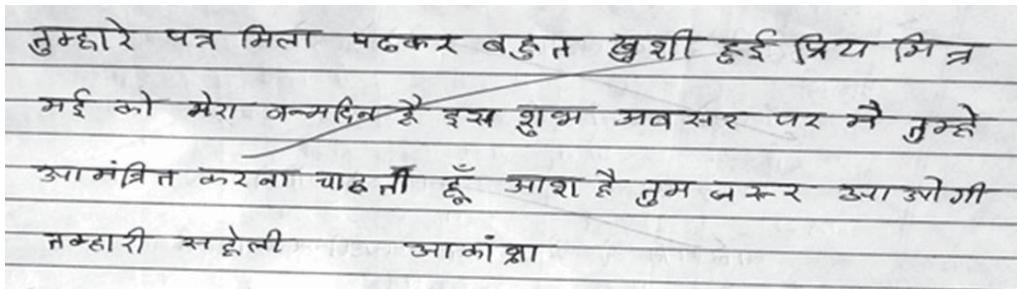 तुम्हारे पत्र मिला पढकर बहुत खुशी हुई प्रिय मित्र
मई को मेरा जन्मदिन है इस शुभ अवसर पर मै तुम्हे
आमंत्रित करना चाहती हूँ आश है तुम जरूर आओगी
तम्हारी सहेली आकांक्षा